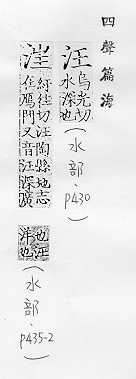 四聲篇海
汪 烏光切
水深也
(水部．p430)
紆往切汪陶縣地志
在鴈門又音汪深廣
也
(水部．p435-2)